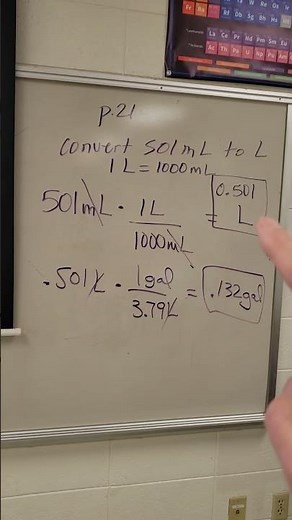 p.21
convert 501mL to L
1 L = 1000mL
501mL · 1L / 1000mL = 0.501 L
.501L · 1gal / 3.79L = .132gal